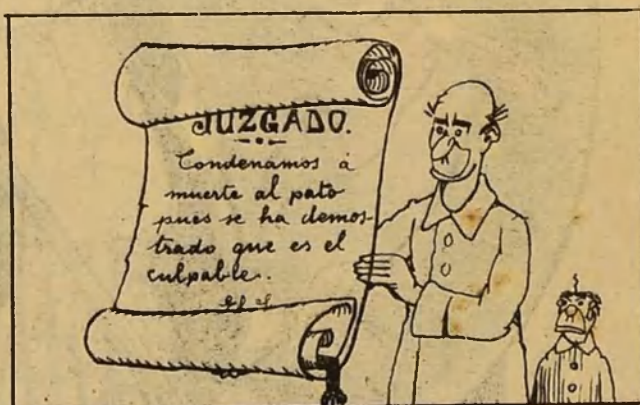 JUZGADO.
Condenamos á
muerte al pato
pues se ha demos-
trado que es el
culpable.